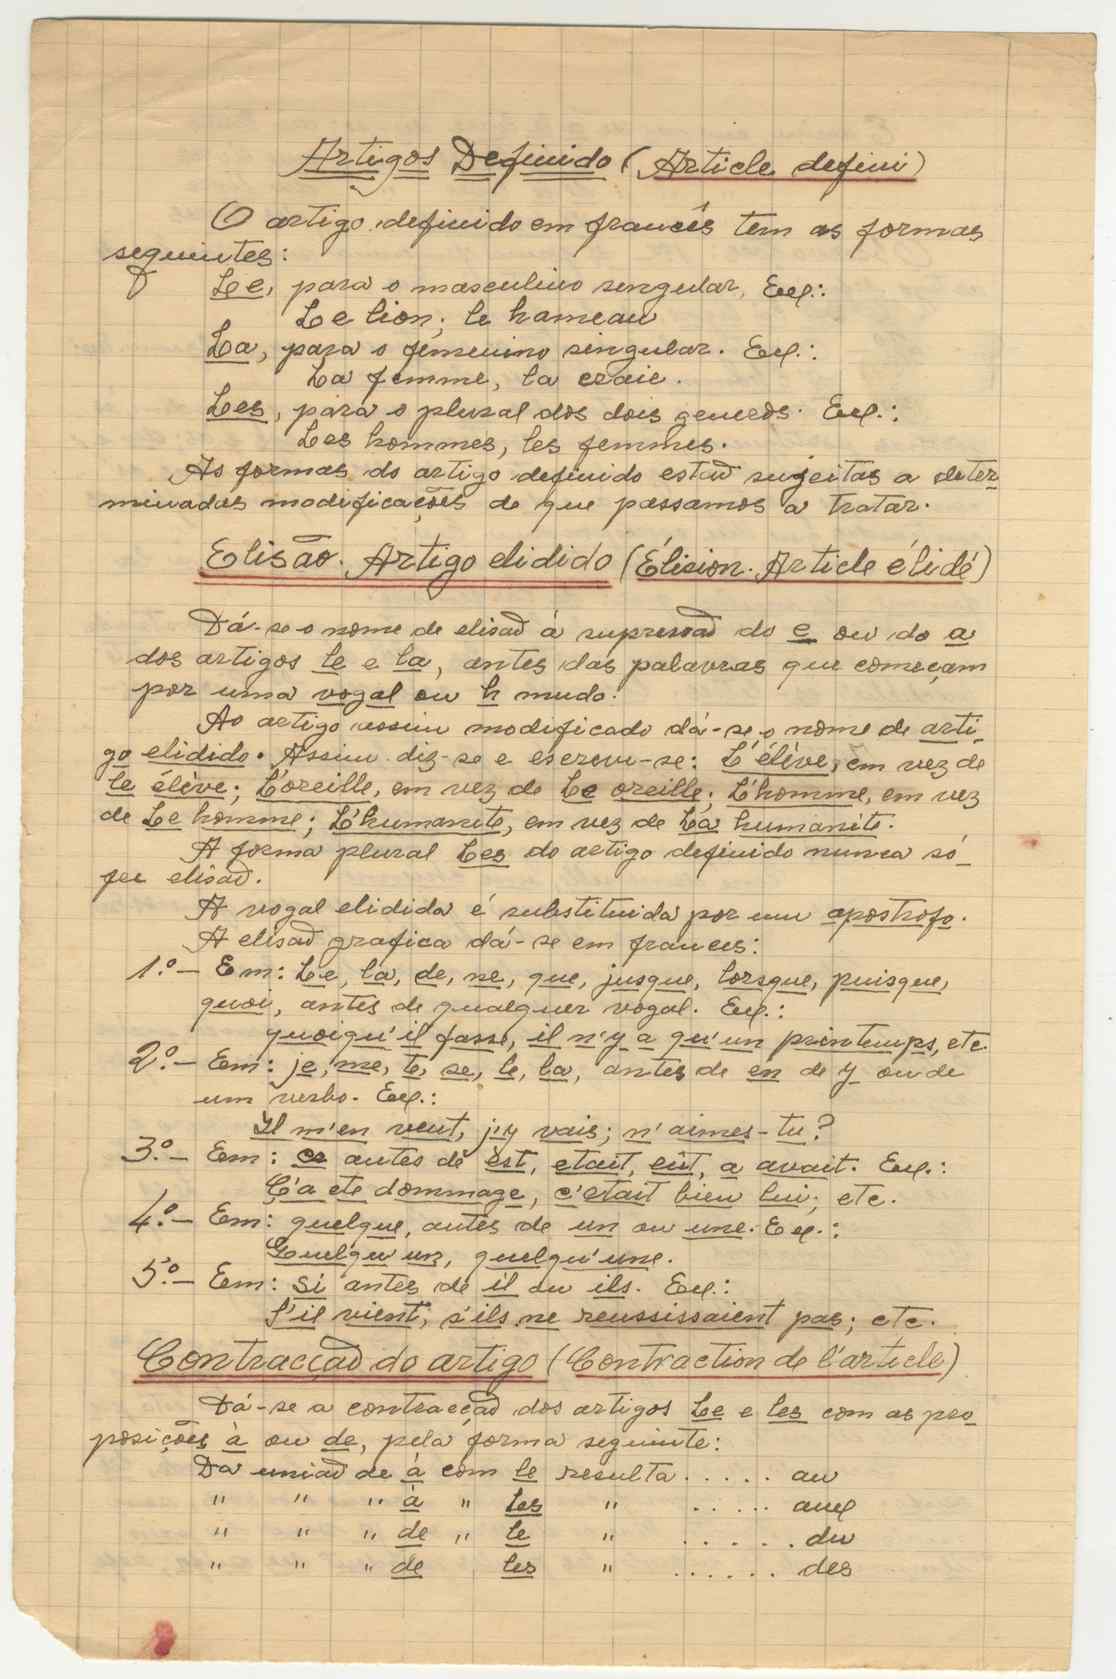 Artigos Definido (Article defini)
O artigo definido em francês tem as formas
seguintes:
Le, para o masculino singular, Ex.:
Le lion; le hameau
La, para o femenino singular. Ex.:
La femme, la craie.
Les, para o plural dos dois generos. Ex.:
Les hommes, les femmes.
As formas do artigo definido estaõ sugeitas a deter
minadas modificações de que passamos a tratar.
Elisão. Artigo elidido (Élision. Article élidé)
Dá-se o nome de elisaõ á supressaõ do e ou do a
dos artigos le e la, antes das palavras que começam
por uma vogal ou h mudo.
Ao artigo assim modificado dá-se o nome de arti-
go elidido. Assim diz-se e escreve-se: L'élève, em vez de
le élève; L'oreille, em vez de Le oreille; L'homme, em vez
de Le homme; L'humanite, em vez de La humanite.
A forma plural Les do artigo definido nunca só-
fre elisaõ.
A vogal elidida é substituida por um apostrofo.
A elisaõ grafica dá-se em frances:
1.º- Em: Le, la, de, ne, que, jusque, lorsque, puisque,
quoi, antes de qualquer vogal. Ex.:
quoiqu'il fasse, il n'y a qu'un printemps, etc.
2º.- Em: je, me, te, se, le, la, antes de en de y ou de
um verbo. Ex.:
Il m'en veut, j'y vais; n'aimes-tu?
3.º- Em: ce antes de est, etait, eût, a avait. Ex.:
Ç'a ete dommage, c'etait bien lui; etc.
4.º- Em: quelque, antes de un ou une. Ex.:
Quelqu'un, quelqu'une.
5º- Em: si antes de il ou ils. Ex.:
S'il vient; s'ils ne reussissaient pas; etc.
Contracçaõ do artigo (Contraction de l'article)
Dá-se a contracçaõ dos artigos Le e les com as pre
posições à ou de, pela forma seguinte:
Da uniaõ de à com le resulta ..... au
" " " à " les " ..... aux
" " " de " le " ...... du
" " " de les " ...... des